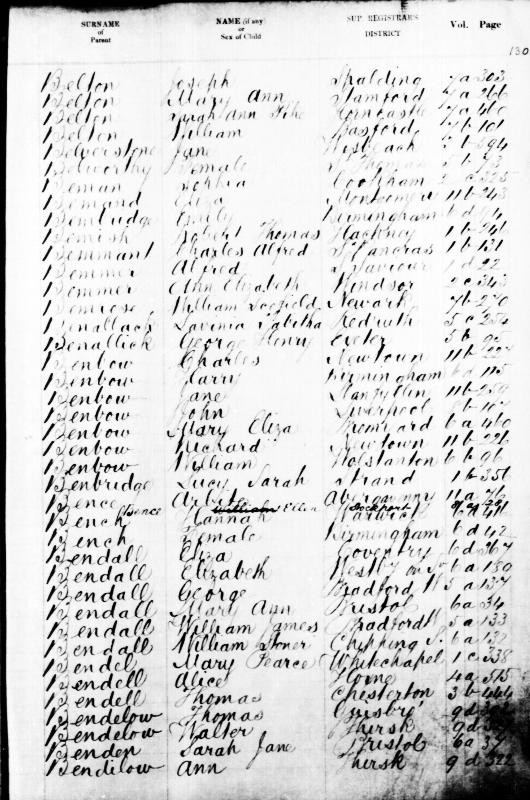 SURNAME of Parent NAME (if any) or Sex of Child SUP. REGISTRAR'S DISTRICT Vol. Page
130
Belton Joseph Spalding 7a 303
Belton Mary Ann Stamford 7a 266
Belton Sarah Ann Horncastle 7a 460
Belton William Basford 7b 101
Belverstone Jane Wisbeach b 594
Belworthy Female St Thomas 5b
Beman Sophia Cookham 2c 375
Bemand Eliza Montgomery 11b 243
Bembridge Emily Birmingham 6d 94
Bemish Robert Thomas Hackney 1b 246
Bemmant Charles Alfred St Pancras 1b 131
Bemmer Alfred St Saviour 1d 22
Bemmer Ann Elizabeth Windsor 2c 343
Bemrose William Scofield Newark 7b 270
Benallack Lavinia Tabitha Redruth 5c 254
Benallick George Henry Exeter 5b 95
Benbow Charles Newtown 11b
Benbow Harry Birmingham 6d 115
Benbow Jane Llanfyllin 11b 259
Benbow John Liverpool 8b 167
Benbow Mary Eliza Tremfard 6a 460
Benbow Richard Newtown 11b 226
Benbow William Wolstanton 6b 96
Benbridge Lucy Sarah Strand 1b 356
Bence Abergavenny 11a 76
Bence William Ellen Stockport
Bench Hannah Warwick
Bench Female Birmingham 6d 42
Bendall Eliza Coventry 6d 367
Bendall Elizabeth Westby on 6a 180
Bendall George Bradford W 5a 137
Bendall Mary Ann Bristol 6a 34
Bendall William James Bradford W 5a 133
Bendall William Stoner Chipping S. 6a 132
Bendel Mary Pearce Whitechapel 1c 338
Bendell Alice Home 4a 515
Bendell Thomas Chesterton 3b 444
Bendelow Thomas Guisbro' 9d
Bendelow Walter Thirsk 9d
Benden Sarah Jane Bristol 6a 37
Bendilow Ann Thirsk 9d 322